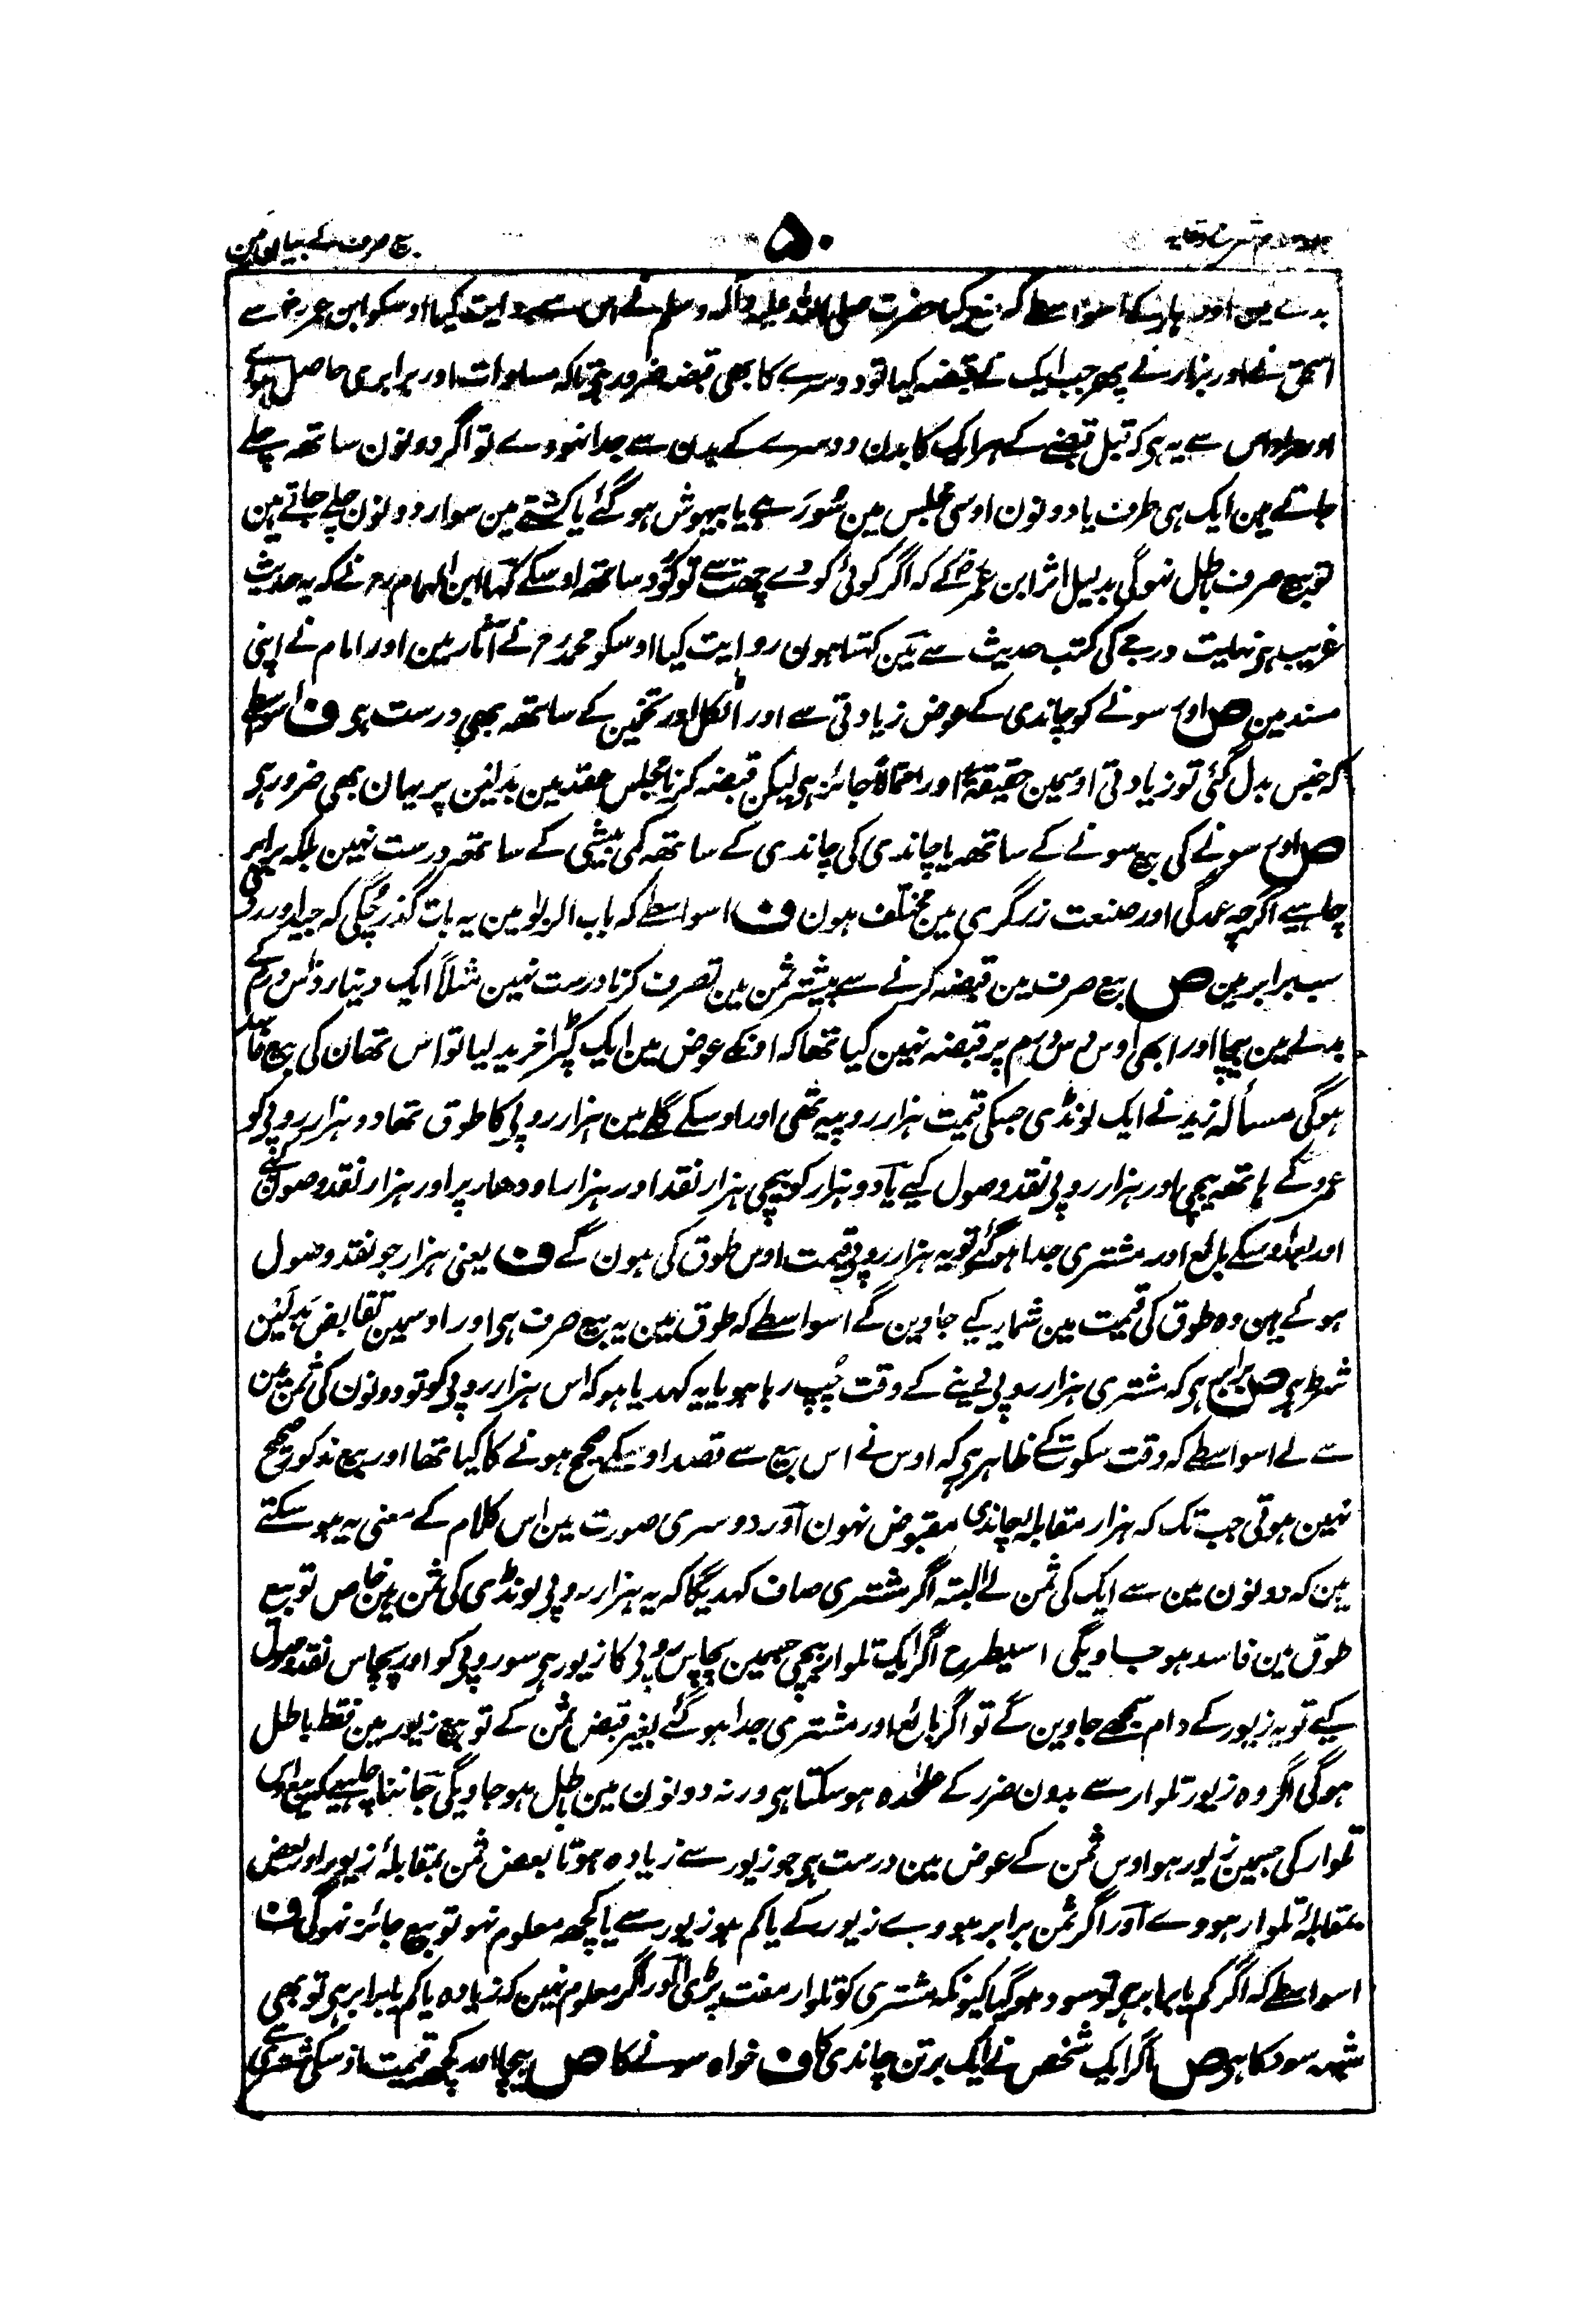 بیع صرف کے بیان مین
۵۰
بدلے مین اودہار کے اسواسطے کہ منع کیا حضرت صلی اللہ علیہ وآلہ وسلم نے اس سے روایت کیا اوسکو ابن عمر رض سے
اسحٰق نے اور بزار نے پھر جب ایک نے قبضہ کیا تو دوسرے کا بھی قبضہ ضرور ہی تاکہ مساوات اور برابری حاصل ہووے
اور مراد اس سے یہ ہی کہ قبل قبضے کے ہر ایک کا بدن دوسرے کے بدن سے جدا نہووے تو اگر دونون ساتھ چلے
جاتے ہین ایک ہی طرف یا دونون اوسی مجلس مین سُورہے یا بیہوش ہو گئے یا کشتی مین سوار دونون چلے جاتے ہین
تو بیع صرف باطل نہوگی بدلیل اثر ابن عمر رض کے کہ اگر کوئی کودے چھت سے تو کُود ساتھ اوسکے کہا ابن الہمام رح نے کہ یہ حدیث
غریب ہی نہایت درجے کی کتب حدیث سے مین کہتا ہون روایت کیا اوسکو محمد رح نے آثار مین اور امام نے اپنی
مسند مین ص اور سونے کو چاندی کے عوض زیادتی سے اور اٹکل اور تخمین کے ساتھ بھی درست ہی ف اسواسطے
کہ جنس بدل گئی تو زیادتی اوسمین حقیقۃً اور احتمالاً جائز ہی لیکن قبضہ کرنا مجلس عقد مین بدلین پر یہان بھی ضرور ہی
ص اور سونے کی بیع سونے کے ساتھ یا چاندی کی چاندی کے ساتھ کمی بیشی کے ساتھ درست نہین بلکہ برابر بیچنی
چاہیے اگرچہ عمدگی اور صنعت زرگری مین مختلف ہون ف اسواسطے کہ باب الربوٰ مین یہ بات گذر چُکی کہ جید اور ردی
سب برابر ہین ص بیع صرف مین قبضہ کرنے سے پیشتر ثمن مین تصرف کرنا درست نہین مثلاً ایک دینار دس درم کے
بدلے مین بیچا اور ابھی اوس دس درم پر قبضہ نہین کیا تھا کہ اونکے عوض مین ایک کپڑا خرید لیا تو اس تھان کی بیع فاسد
ہوگی مسألہ زید نے ایک لونڈی جسکی قیمت ہزار روپیہ تھی اور اوسکے گلے مین ہزار روپی کا طوق تھا دو ہزار روپی کو
عمرو کے ہاتھ بیچی اور ہزار روپی نقد وصول کیے یا دو ہزار کو بیچی ہزار نقد اور ہزار اودھار پر اور ہزار نقد وصول کیے
اور بعد اوسکے بائع اور مشتری جدا ہو گئے تو یہ ہزار روپی قیمت اوس طوق کی ہون گے ف یعنی ہزار جو نقد وصول
ہوئے ہین وہ طوق کی قیمت مین شمار کیے جاوین گے اسواسطے کہ طوق مین یہ بیع صرف ہی اور اوسمین تقابض بدلین
شرط ہی ص برابر ہی کہ مشتری ہزار روپی دینے کے وقت چُپ رہا ہو یا یہ کہدیا ہو کہ اس ہزار روپی کو تو دونون کی ثمن مین
سے لے اسواسطے کہ وقت سکوت کے ظاہر ہی کہ اوس نے اس بیع سے قصد اوسکے صحیح ہونے کا کیا تھا اور بیع مذکور صحیح
نہین ہوتی جب تک کہ ہزار مقابلہ چاندی مقبوض نہون اور دوسری صورت مین اس کلام کے معنی یہ ہو سکتے
ہین کہ دونون مین سے ایک کی ثمن لے البتہ اگر مشتری صاف کہدیگا کہ یہ ہزار روپی لونڈی کی ثمن ہین خاص تو بیع
طوق مین فاسد ہو جاویگی اسیطرح اگر ایک تلوار بیچی جسمین پچاس روپی کا زیور ہی سو روپی کو اور پچاس نقد وصول
کیے تو یہ زیور کے دام سمجھے جاوین گے تو اگر بائع اور مشتری جدا ہو گئے بغیر قبض ثمن کے تو بیع زیور مین فقط باطل
ہوگی اگر وہ زیور تلوار سے بدون ضرر کے علٰحدہ ہو سکتا ہی ورنہ دونون مین باطل ہو جاویگی جاننا چاہیے کہ بیع اس
تلوار کی جسمین زیور ہو اوس ثمن کے عوض مین درست ہی جو زیور سے زیادہ ہو تا بعض ثمن بمقابلۂ زیور اور بعض
بمقابلۂ تلوار ہووے اور اگر ثمن برابر ہووے زیور کے یا کم ہو زیور سے یا کچھ معلوم نہو تو بیع جائز نہوگی ف
اسواسطے کہ اگر کم یا برابر ہی تو سود ہو گیا کیونکہ مشتری کو تلوار مفت پڑی اور اگر معلوم نہین کہ زیادہ یا کم یا برابر ہی تو بھی
شبہہ سود کا ہی ص اگر ایک شخص نے ایک برتن چاندی کا ف خواہ سونے کا ص بیچا اور کچھ قیمت اوسکی مشتری سے